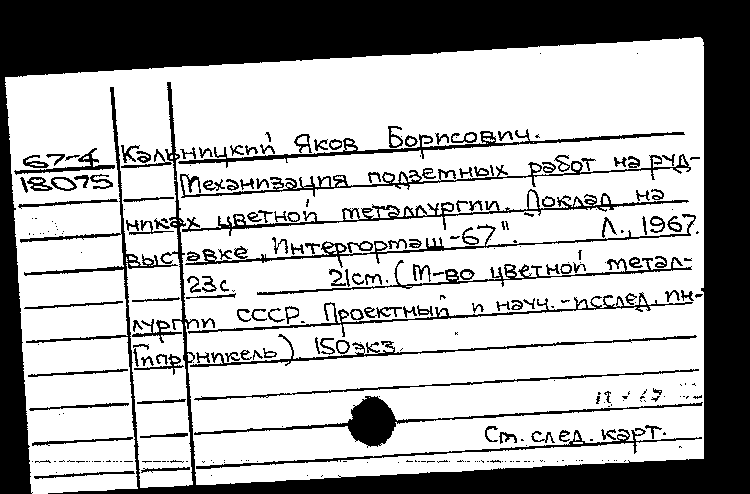 67-4 Кальницкий, Яков Борисович.
18075 Механизация подземных работ на руд-
никах цветной металлургии. Доклад на
выставке „Интергормаш-67". Л., 1967.
23с. 21см. (М-во цветной метал-
лургии СССР. Проектный и науч.-исслед. ин-
Гипроникель). 150экз.
См. след. карт.